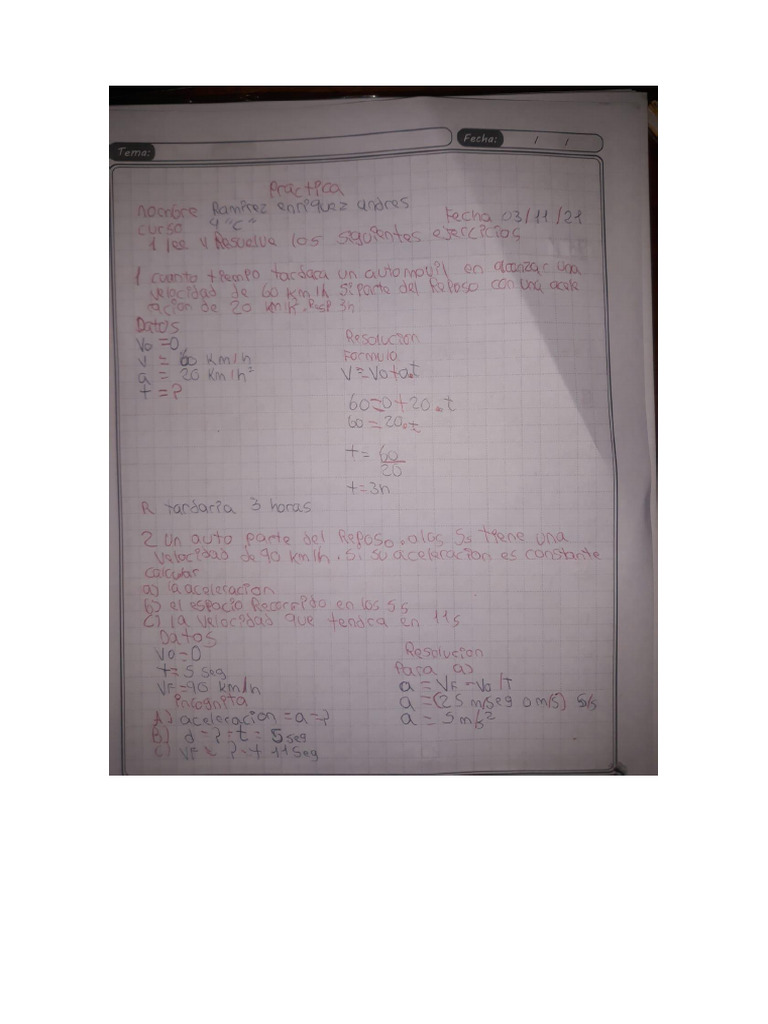 Tema:
Fecha: / /
Practica
nombre Ramirez enriquez andres
Fecha 03/11/21
curso 4 "C"
1 lee y Resuelve los siguientes ejercicios
1 cuanto tiempo tardara un automovil en alcanzar una
velocidad de 60 km/h si parte del Reposo con una acele
racion de 20 km/h². Resp 3h
Datos
Vo =0
V = 60 km/h
a = 20 Km/h²
t = ?
Resolucion
Formula
V=Vo+a.t
60=0+20.t
60=20.t
t= 60/20
t=3h
R tardaria 3 horas
2 un auto parte del Reposo. a los 5s tiene una
velocidad de 90 km/h. si su aceleracion es constante
calcular
a) la aceleracion
b) el espacio Recorrido en los 5s
c) la velocidad que tendra en 11s
Datos
Vo=0
t=5 seg
VF=90 km/h
incognita
A) aceleracion = a=?
B) d=?=t= 5seg
C) VF = ?=t 11seg
Resolucion
Para a)
a = VF -Vo/T
a =(25 m/seg 0 m/s) 5/s
a = 5m/s²